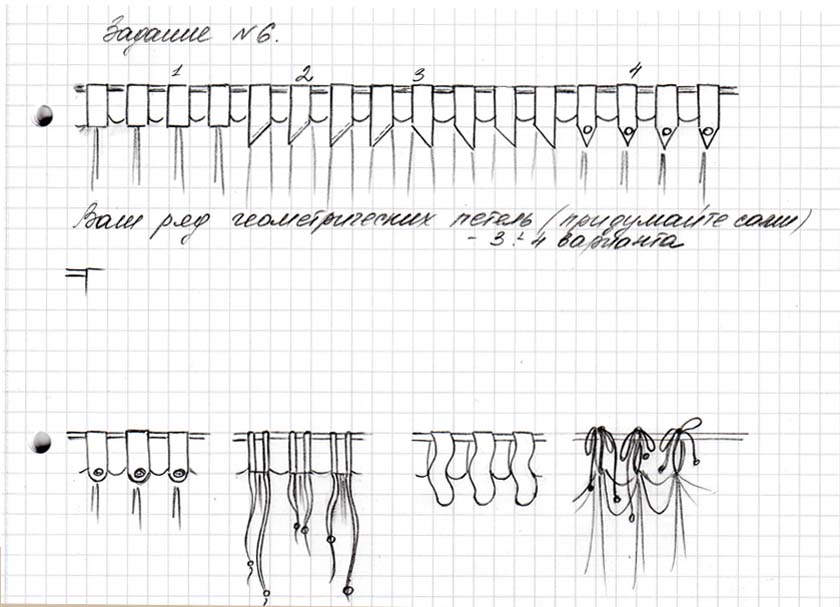 Задание №6.
1 2 3 4
Ваш ряд геометрических петель (придумайте сами)
- 3 ÷ 4 варианта